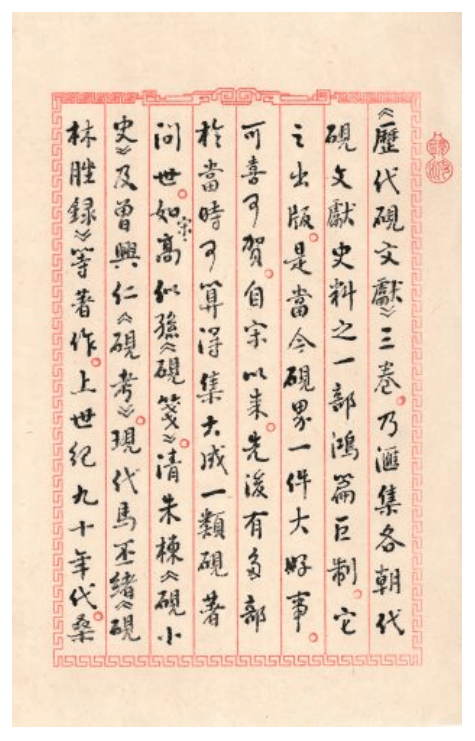 《歷代硯文獻》三卷。乃滙集各朝代
硯文獻史料之一部鴻篇巨制。它
之出版。是當今硯界一件大好事。
可喜可賀。自宋以来。先後有多部
於當時可算得集大成一類硯著
问世。如宋·高似孫《硯箋》。清朱棟《硯小
史》及曾興仁《硯考》。現代馬丕緒《硯
林脞録》等著作。上世纪九十年代。桑